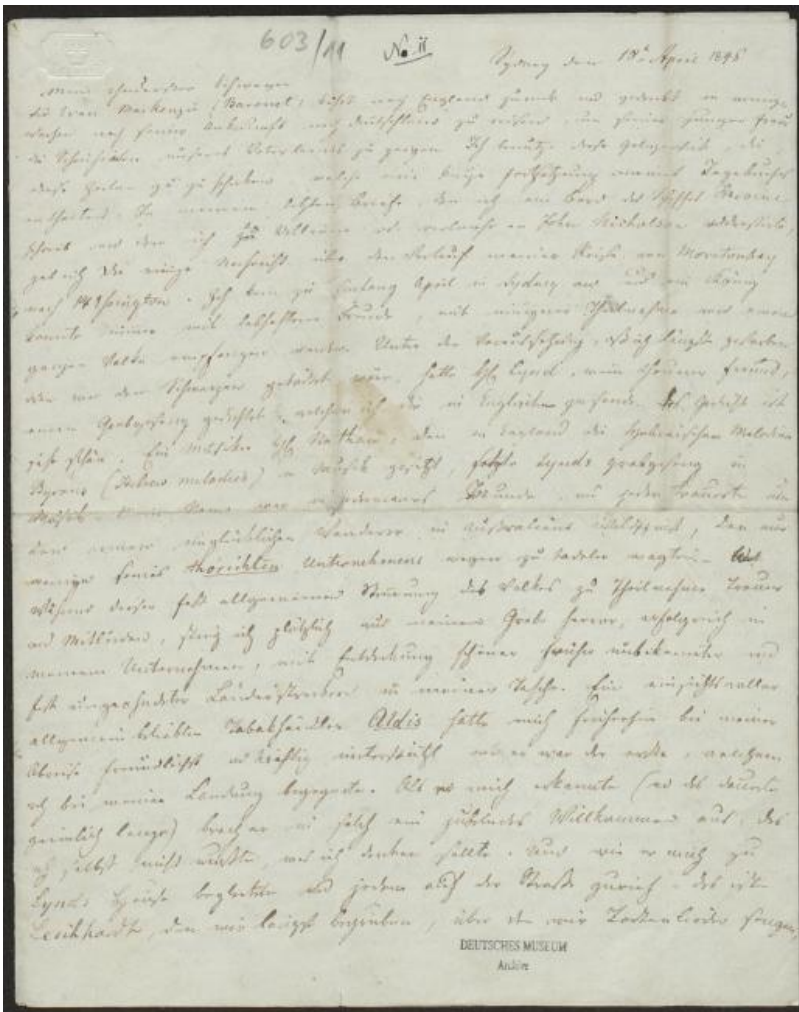 603/11 No 11
Sydney den 18t April 1846
Mein theuerster Schwager
Sir Evan Mackenzie (Baronet) kehrt nach England zurück und gedenkt in wenigen
Wochen nach seiner Ankunft nach Deutschland zu reisen, um seiner jungen Frau
die Schönheiten unseres Vaterlandes zu zeigen. Ich benutze diese Gelegenheit, dir
diese Zeilen zu zu schicken, welche eine kurze Fortsetzung meines Tagebuches
enthalten. In meinem Briefe, den ich am Bord des Schiffes Heroine
schrieb und den ich zu an John Nicholson addressirte,
gab ich dir einige Nachricht über den Verlauf meiner Reise von Moretonbay
nach Pt Essington. Ich kam zu Anfang April in Sydney an und ein König
konnte nimmer mit lebhafterer Freude, mit innigerer Theilnahme von einem
ganzen Volke empfangen werden. Unter der Voraussetzung, daß ich längst gestorben
oder von den Schwarzen getödtet wär, hatte H. Lynd, mein theurer Freund,
einen Grabgesang gedichtet, welchen ich dir in Englischen zusende. Das Gedicht ist
sehr schön. Ein Musiker H. Nathan, der in England die Hebraischen Melodien
Byrons (Hebrew melodies) in Musik gesetzt, setzte Lynds Grabgesang in
Musik. Mein Name war in jedermanns Munde und jeder trauerte um
den armen unglücklichen Wanderer in Australiens, den nur
wenige seines thorichten Unternehmens wegen zu tadeln wagten. Als
dieser fast allgemeinen Stimmung des Volkes zu Theilnahme, Trauer
und Mitleiden, stieg ich plötzlich aus meinem Grabe hervor, erfolgreich in
meinem Unternehmen, mit Entdeckung schöner früher unbekannter und
fast ungeahndeter Länderstrecken in meiner Tasche. Ein einsichtsvoller
allgemein beliebter Tabakhändler Aldis hatte mich früherhin bei meiner
Abreise freundlichst und kräftig unterstützt und er war der erste, welchem
ich bei meiner Landung begegnete. Als er mich erkannte (und das dauerte
ziemlich lange) brach er in solch ein jubelndes Willkommen aus, das
ich selbst nicht wußte, was ich denken sollte. Und wie er mich zu
Lynds Hause begleitete und jedem auf der Straße zurief: das ist
Leichhardt, den wir längst begruben, über den wir Todtenlieder sangen,
DEUTSCHES MUSEUM
Archiv